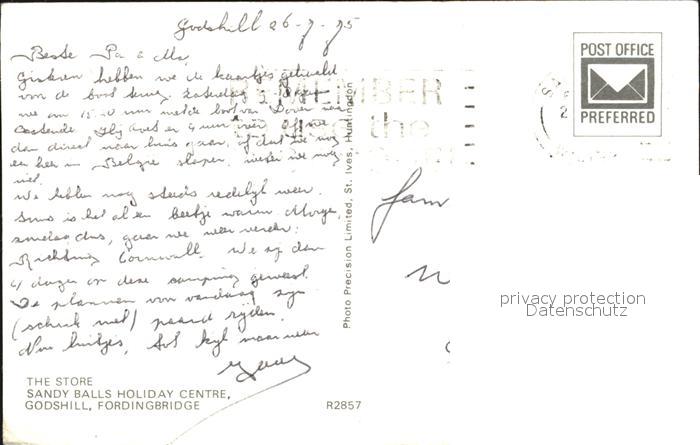 Godshill 26-7-75
Beste Pa & Ma,
Gisteren hebben we de kaartjes gehaald
van de boot terug. Zaterdag 2
we om 15.20 uur met de boot van Dover naar
Oostende. Hij doet er 4 uur over. Of we
dan direct naar huis gaan, of dat we nog
een keer in Belgie slapen, weten we nog
niet.
We hebben nog steeds redelijk weer.
Soms is het al een beetje warm. Morgen,
zondag dus, gaan we weer verder:
Richting Cornwall. We zijn dan
4 dagen op deze camping geweest.
De plannen van vandaag zijn
(schrik niet) paard rijden.
Nou luitjes, tot kijk maar weer
THE STORE
SANDY BALLS HOLIDAY CENTRE,
GODSHILL, FORDINGBRIDGE
R2857
Photo Precision Limited, St. Ives, Huntingdon
REMEMBER
the
POST OFFICE
PREFERRED
Fam
privacy protection
Datenschutz